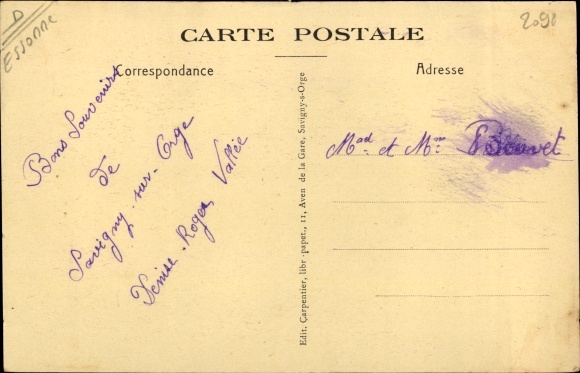 D
Essonne
2098
CARTE POSTALE
Correspondance
Adresse
Bons Souvenirs
de
Savigny-sur-Orge
Denise-Roger Vallée
Edit. Carpentier, libr-papet., 11, Aven de la Gare, Savigny-s-Orge
Mad et Mr Bouvet